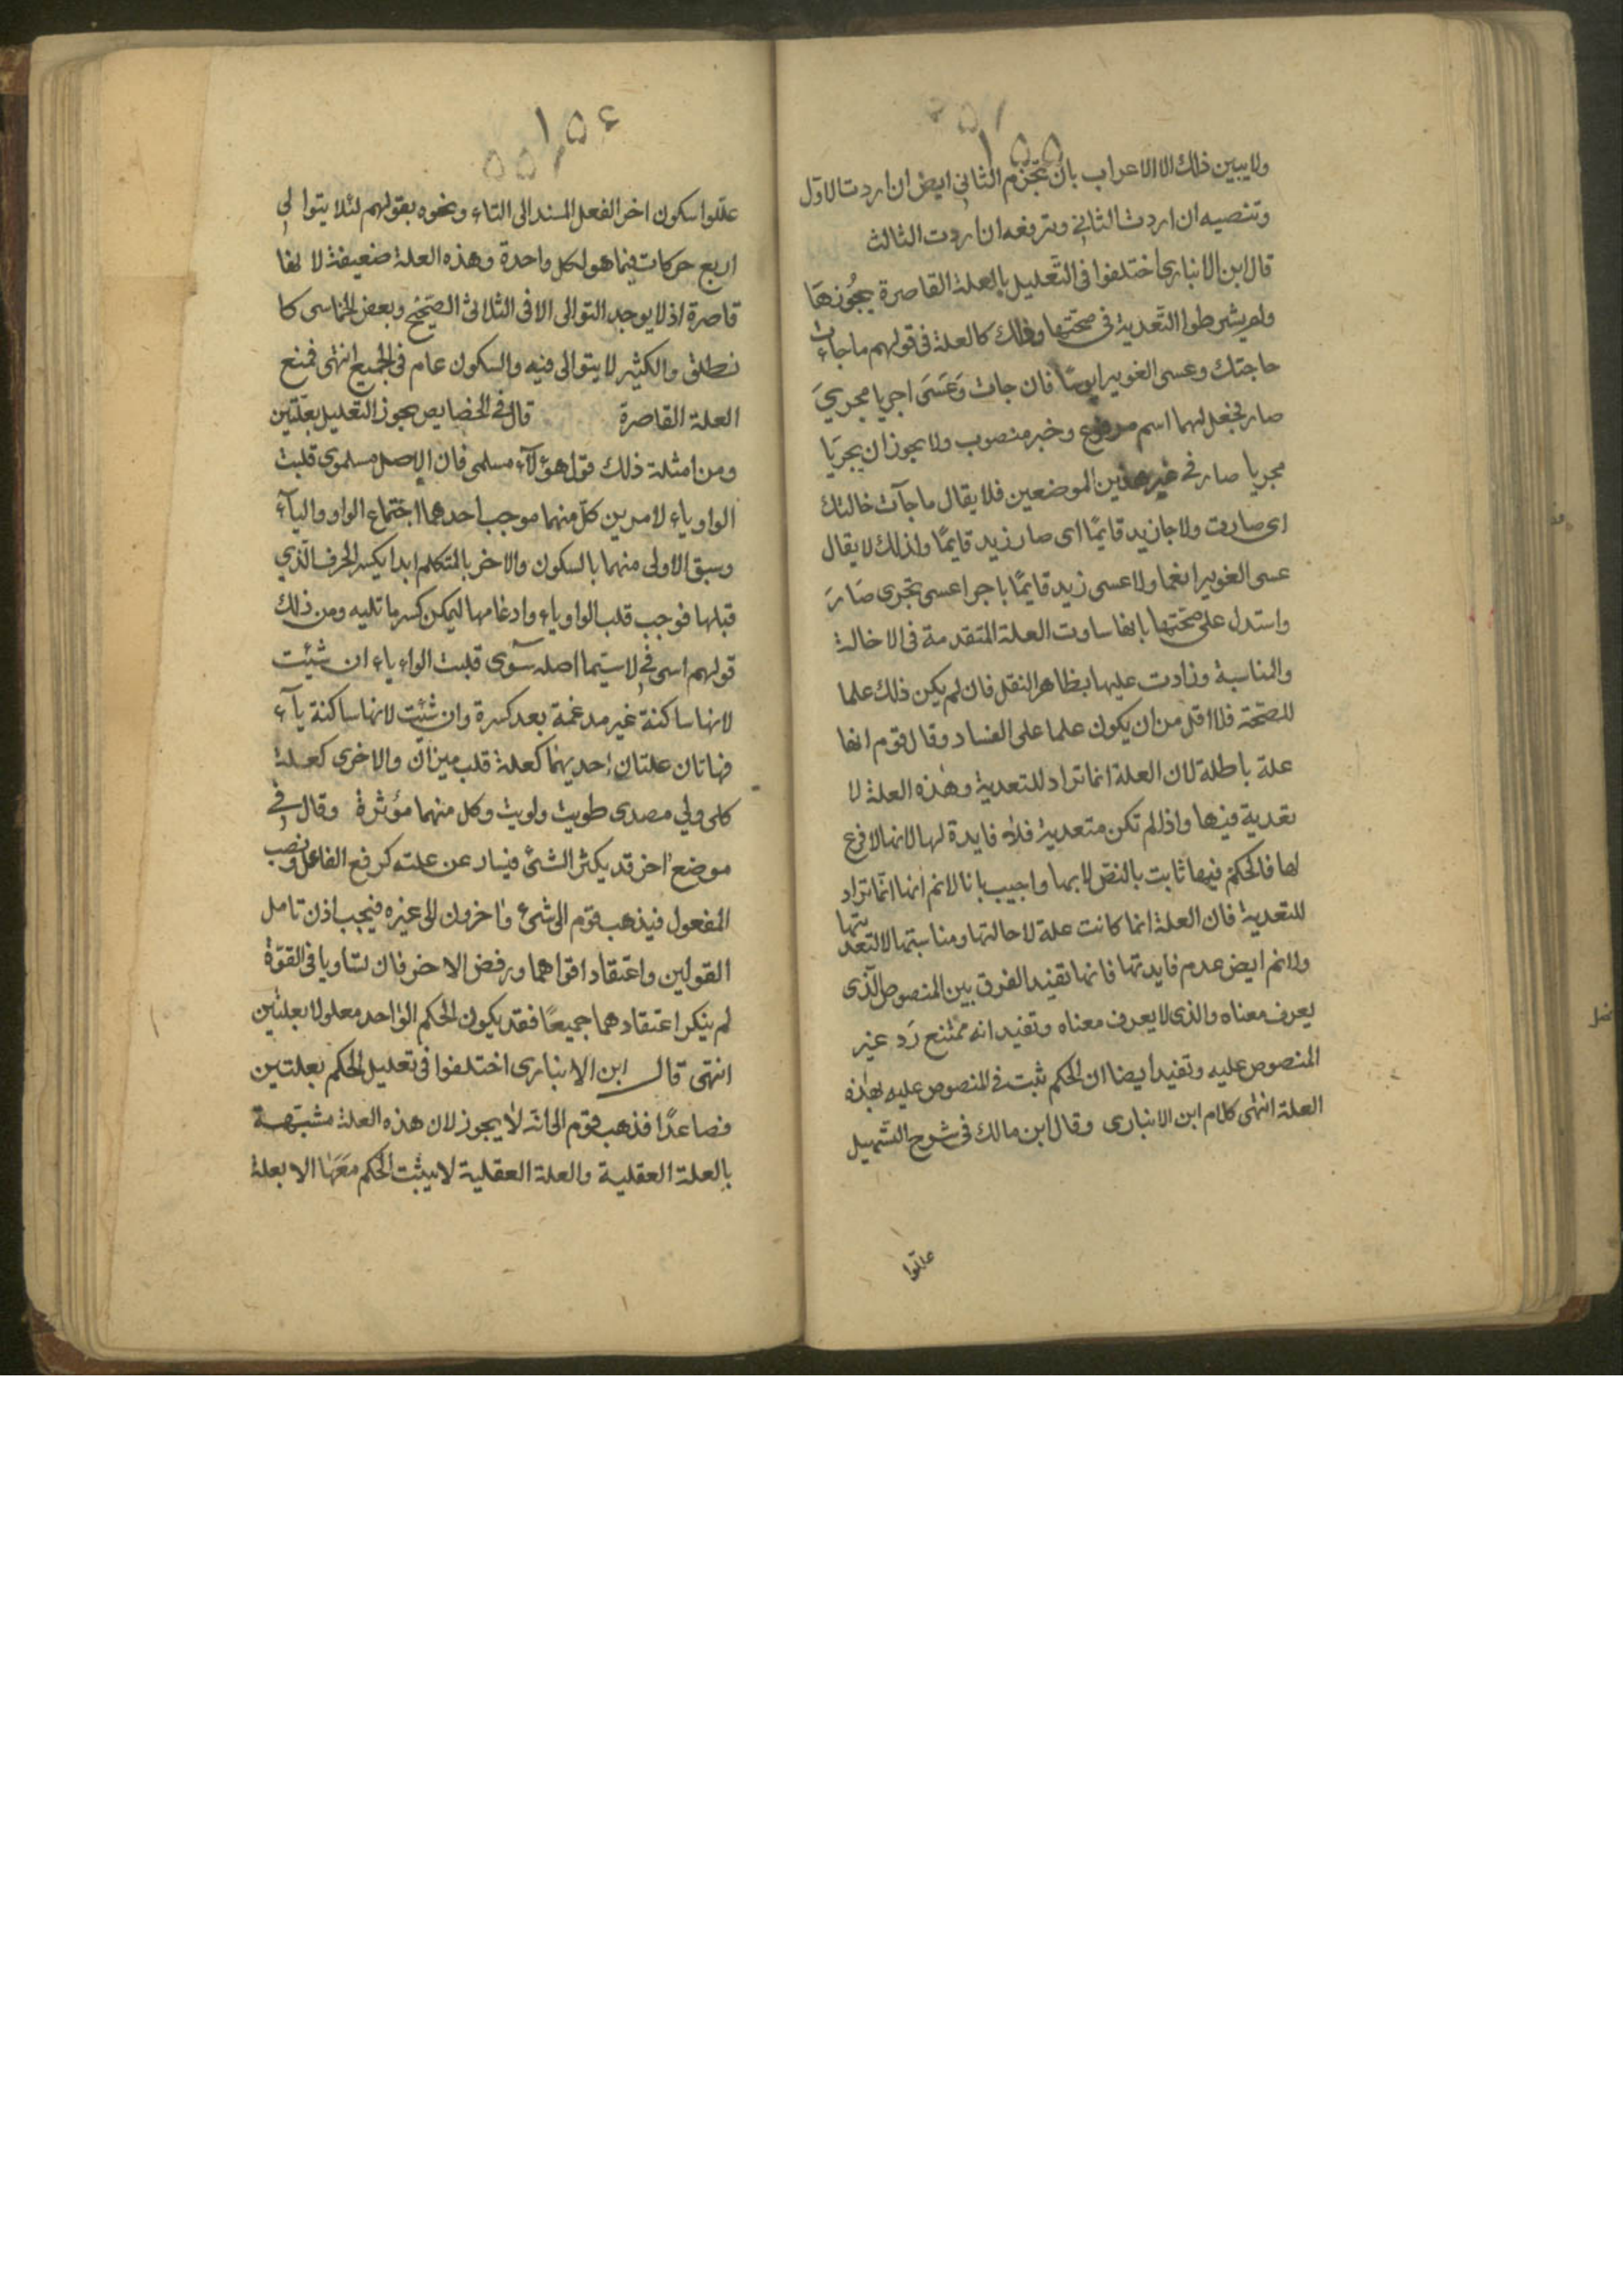 ١٥٥
ولا يبين ذلك الا الاعراب بان تجزم الثاني ايض ان اردت الاول
وتنصبه ان اردت الثاني وترفعه ان اردت الثالث
قال ابن الانباري اختلفوا في التعليل بالعلة القاصرة يجوزها
ولم يشرطوا التعدية في صحتها وذلك كالعلة في قولهم ما جاءت
حاجتك وعسى الغوير ابوسًا فان جات وعَسَى اجريا مجريَ
صار فجعل لهما اسم مرفوع وخبر منصوب ولا يجوز ان يجريَا
مجريا صار في غير هذين الموضعين فلا يقال ما جآت خالتك
اي صارت ولا جا زيد قايمًا اى صار زيد قايمًا ولذلك لا يقال
عسى الغوير انغما ولا عسى زيد قايمًا باجرا عسى مجرى صَارَ
واستدل على صحتها بانها ساوت العلة المتقدمة في الاخالة
والمناسبة وزادت عليها بظاهر النقل فان لم يكن ذلك علما
للصحّة فلا اقل من ان يكون علما على الفساد وقال قوم انها
علة باطلة لان العلة انما تراد للتعدية وهذه العلة لا
تعدية فيها واذا لم تكن متعدية فلا فايدة لها لانها لا فرع
لها فالحكم فيها ثابت بالنصّ لا بها واجيب بانا لا نم انها انّما تراد
للتعدية فان العلة انما كانت علة لاحالتها ومناسبتها لا لتعديتها
ولا نم ايض عدم فايدتها فانها تفيد الفرق بين المنصوص الّذى
يعرف معناه والذى لا يعرف معناه وتفيد انه ممتنع رَد غير
المنصوص عليه وتفيد ايضا ان الحكم ثبت في المنصوص عليه بهذه
العلة انتهى كلام ابن الانبارى وقال ابن مالك في شرح التسهيل
علّلوا
١٥٤
علّلوا سكون اخر الفعل المسند الى التاء ونحوه بقولهم لئلا يتوالى
اربع حركات فيما هو لكل واحدة وهذه العلة ضعيفة لانها
قاصرة اذ لا يوجد التوالى الا في الثلاثى الصّحيح وبعض الخماسى كا
نطلق والكثير لا يتوالى فيه والسكون عام في الجميع انتهى فمنع
العلة القاصرة قال في الخصايص يجوز التعليل بعلّتين
ومن امثلة ذلك قول هؤلآء مسلمى فان الاصل مسلموى قلبت
الواو ياء لامرين كلّ منهما موجب احدهما اجتماع الواو واليآء
وسبق الاولى منهما بالسكون والاخر بالمتكلم ابدا يكسر الحرف الّذي
قبلها فوجب قلب الواو ياء وادغامها ليمكن كسر ما تليه ومن ذلك
قولهم اسى في لا سيّما اصله سَوى قلبت الواء ياء ان شيئت
لانها ساكنة غير مدغمة بعد كسرة وان شئت لانها ساكنة يآء
فهاتان علتان احديهما كعلة قلب ميزان والاخرى كعلة
كلى ولي مصدى طويت ولويت وكل منهما مؤثرة وقال في
موضع اخر قد يكثر الشئ فيسار عن علته كرفع الفاعل ونصب
المفعول فيذهب قوم الى شئ واخرون الى غيره فيجب اذن تامل
القولين واعتقاد اقواهما ورفض الاخر فان تساويا في القوّة
لم ينكر اعتقادهما جميعًا فقد يكون الحكم الواحد معلولا بعلتين
انتهى قال ابن الانبارى اختلفوا في تعليل الحكم بعلتين
فصاعدًا فذهب قوم الى انّه لا يجوز لان هذه العلة مشبّهة
بالعلة العقلية والعلة العقلية لا يثبت الحكم مَعَها الا بعلة